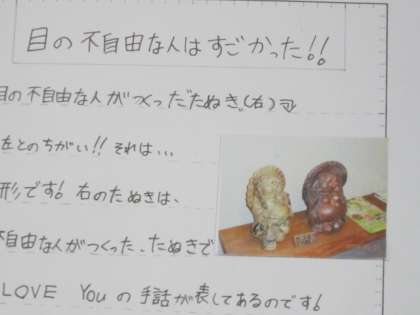 目の不自由な人はすごかった!!
目の不自由な人がつくったたぬき。(右)
左とのちがい!! それは…
形です! 右のたぬきは、
不自由な人がつくった、たぬきで
LOVE Youの手話が表してあるのです!